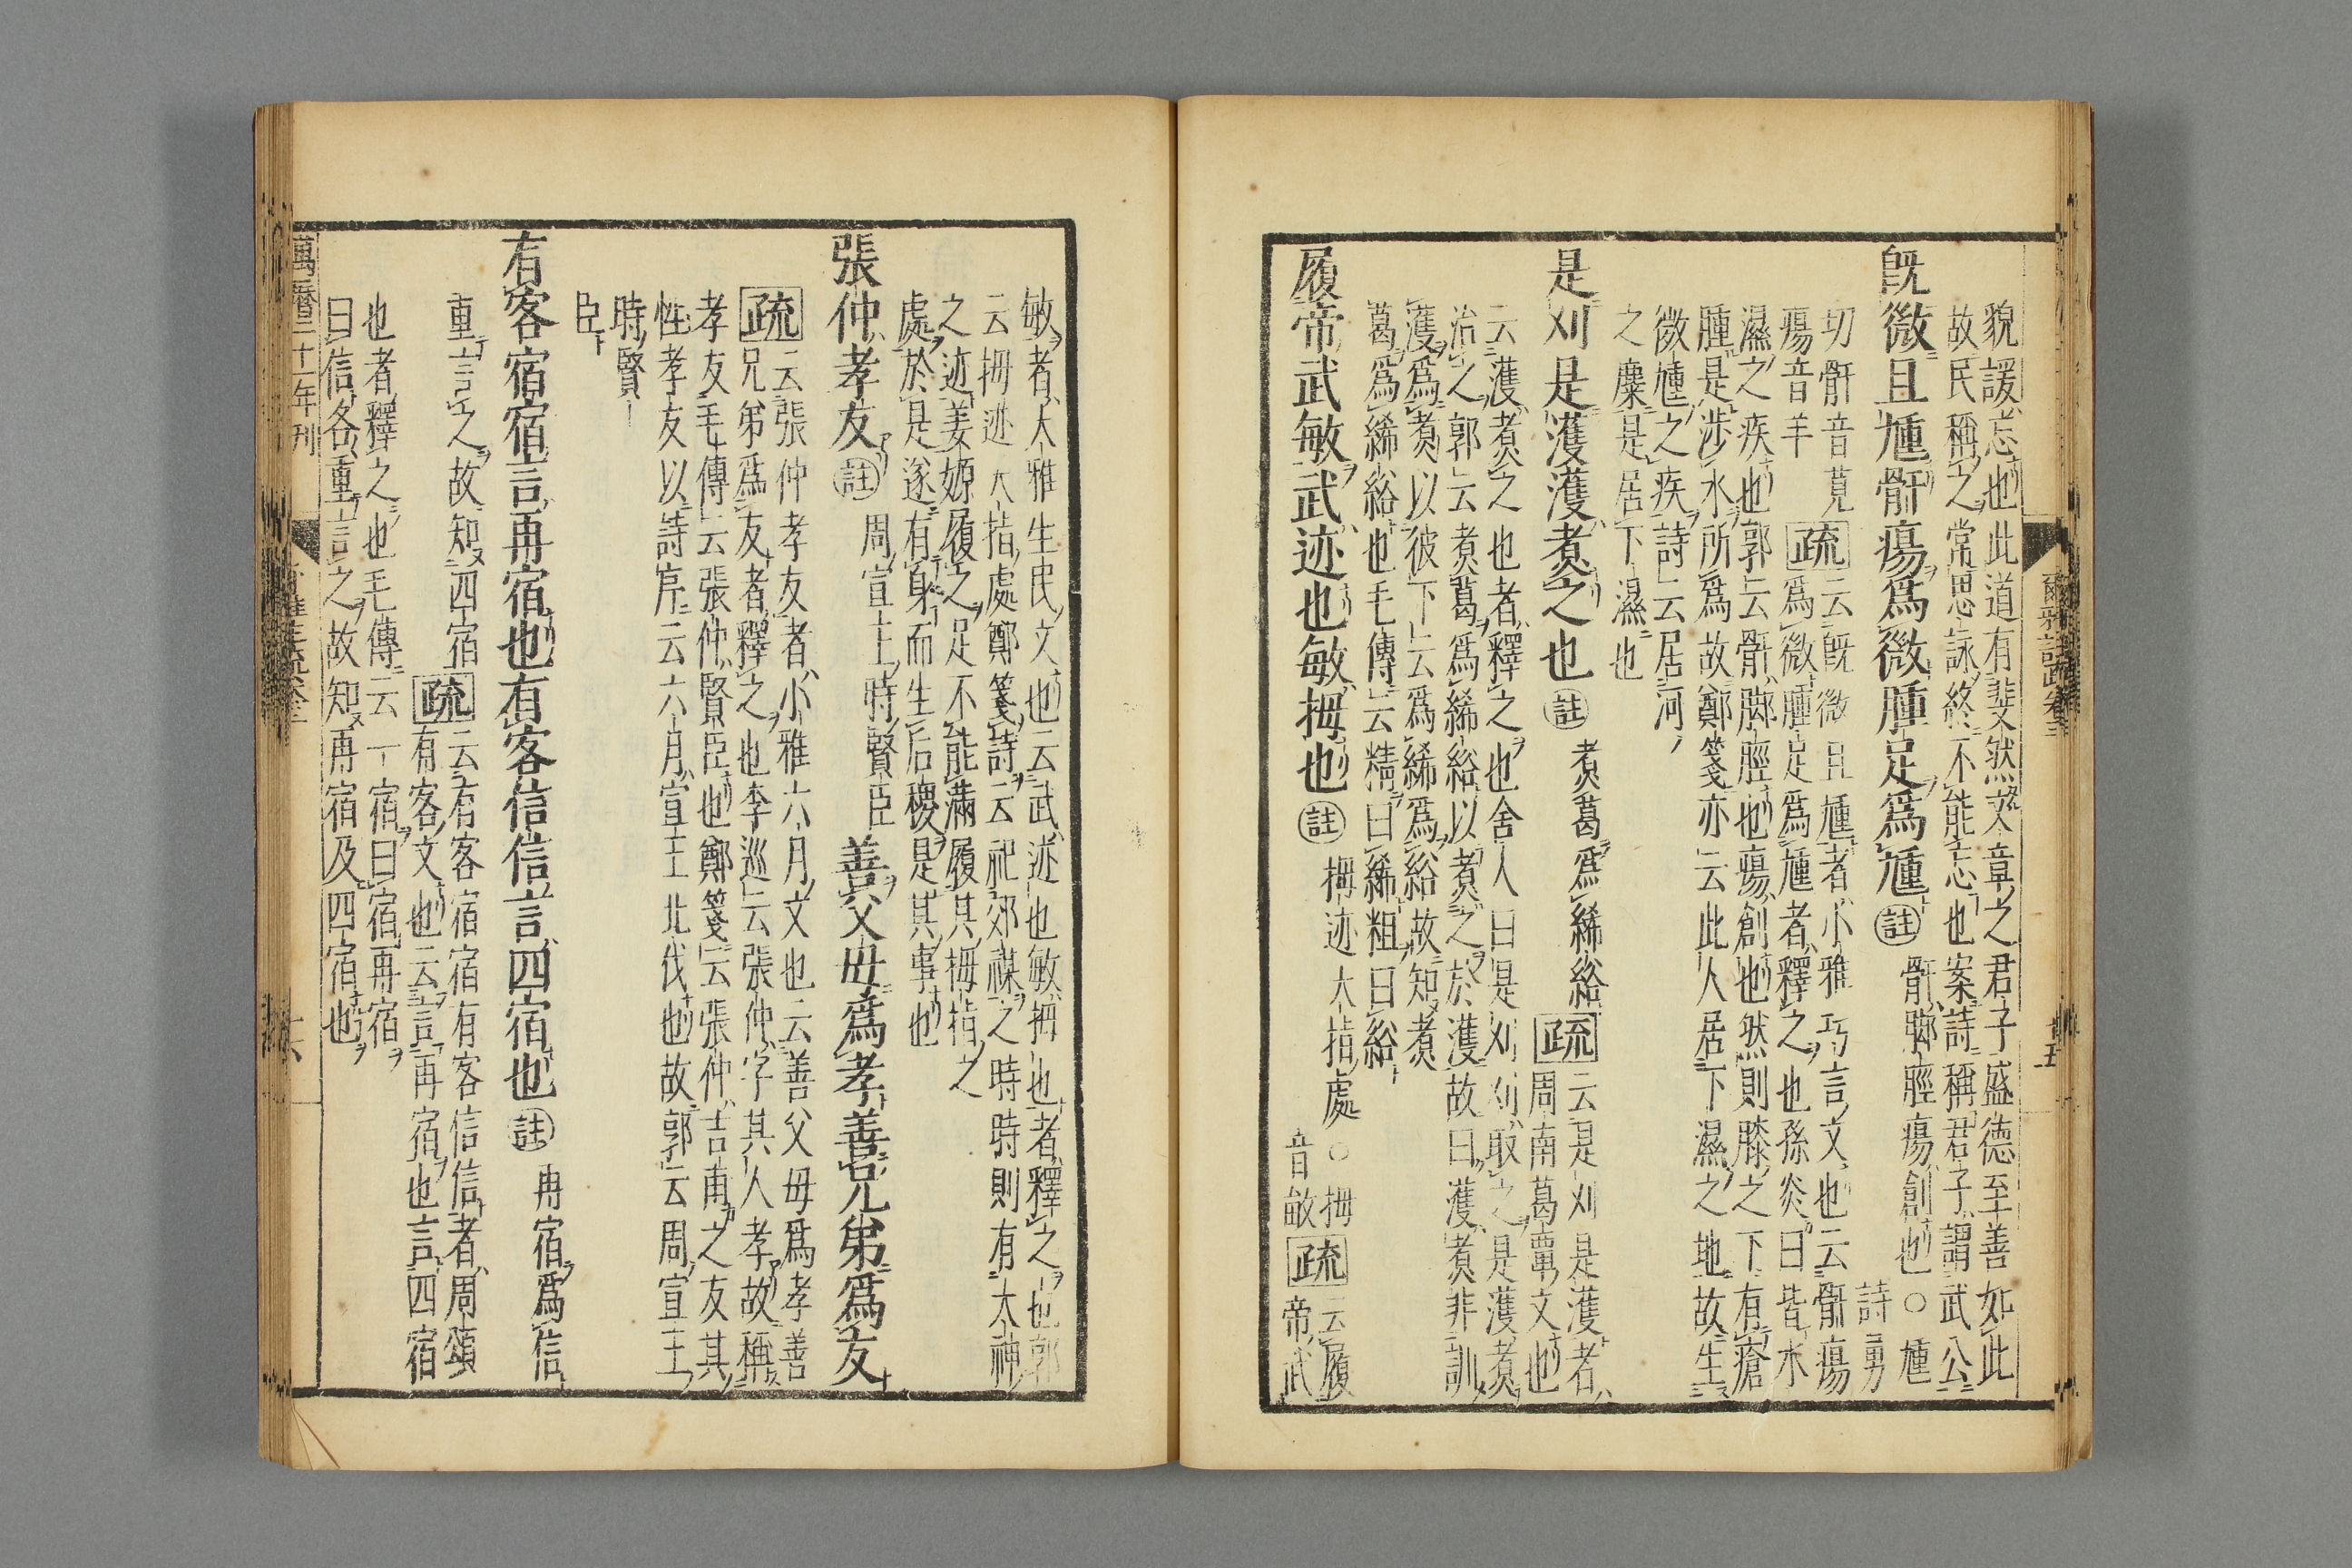 爾雅註疏卷三
貌諼忘也此道有斐然文章之君子盛德至善如此
故民稱之常思詠終不能忘也案詩稱君子謂武公
旣微且尰骭瘍爲微腫足爲尰註
骭腳脛瘍創也○尰
詩勇
切骭音莧
瘍音羊
疏
云旣微且尰者小雅巧言文也云骭瘍
爲微腫足爲尰者釋之也孫炎曰皆水
濕之疾也郭云骭腳脛也瘍創也然則膝之下有瘡
腫是涉水所爲故鄭箋亦云此人居下濕之地故生
微尰之疾詩云居河
之麋是居下濕也
是刈是濩濩煮之也註
煮葛爲絺綌
疏
云是刈是濩者
周南葛覃文也
云濩煮之也者釋之也舍人曰是刈刈取之是濩煮
治之郭云煮葛爲絺綌以煮之於濩故曰濩煮非訓
濩爲煮以彼下云爲絺爲綌故知煮
葛爲絺綌也毛傳云精曰絺粗曰綌
履帝武敏武迹也敏拇也註
拇迹大指處
○拇
音敏
疏
云履
帝武
敏者大雅生民文也云武迹也敏拇也者釋之也郭
云拇迹大指處鄭箋詩云祀郊禖之時時則有大神
之迹姜嫄履之足不能滿履其拇指之
處於是遂有身而生后稷是其事也
張仲孝友註
周宣王時賢臣
善父母爲孝善兄弟爲友
疏
云張仲孝友者小雅六月文也云善父母爲孝善
兄弟爲友者釋之也李巡云張仲字其人孝故稱
孝友毛傳云張仲賢臣也鄭箋云張仲吉甫之友其
性孝友以詩序云六月宣王北伐也故郭云周宣王
時賢
臣
有客宿宿言再宿也有客信信言四宿也註
再宿爲信
重言之故知四宿
疏
云有客宿宿有客信信者周頌
有客文也云言再宿也言四宿
也者釋之也毛傳云一宿曰宿再宿
曰信各重言之故知再宿及四宿也
萬曆二十一年刊